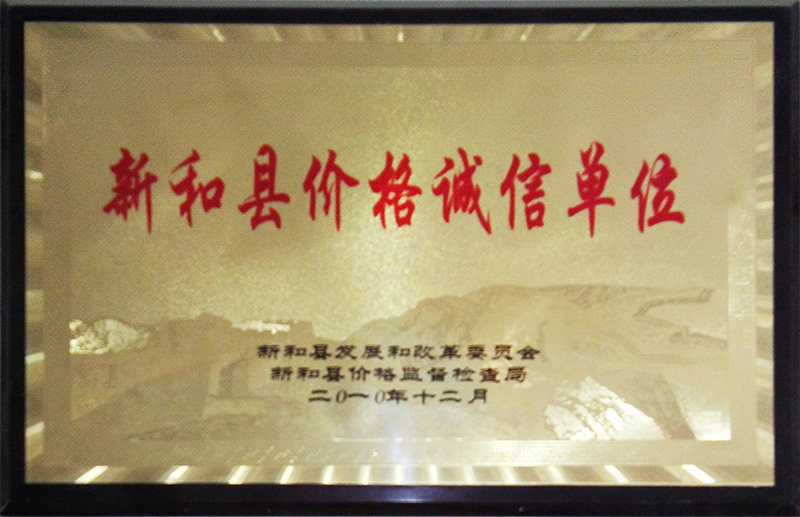 新和县价格诚信单位
新和县发展和改革委员会
新和县价格监督检查局
二0一0年十二月